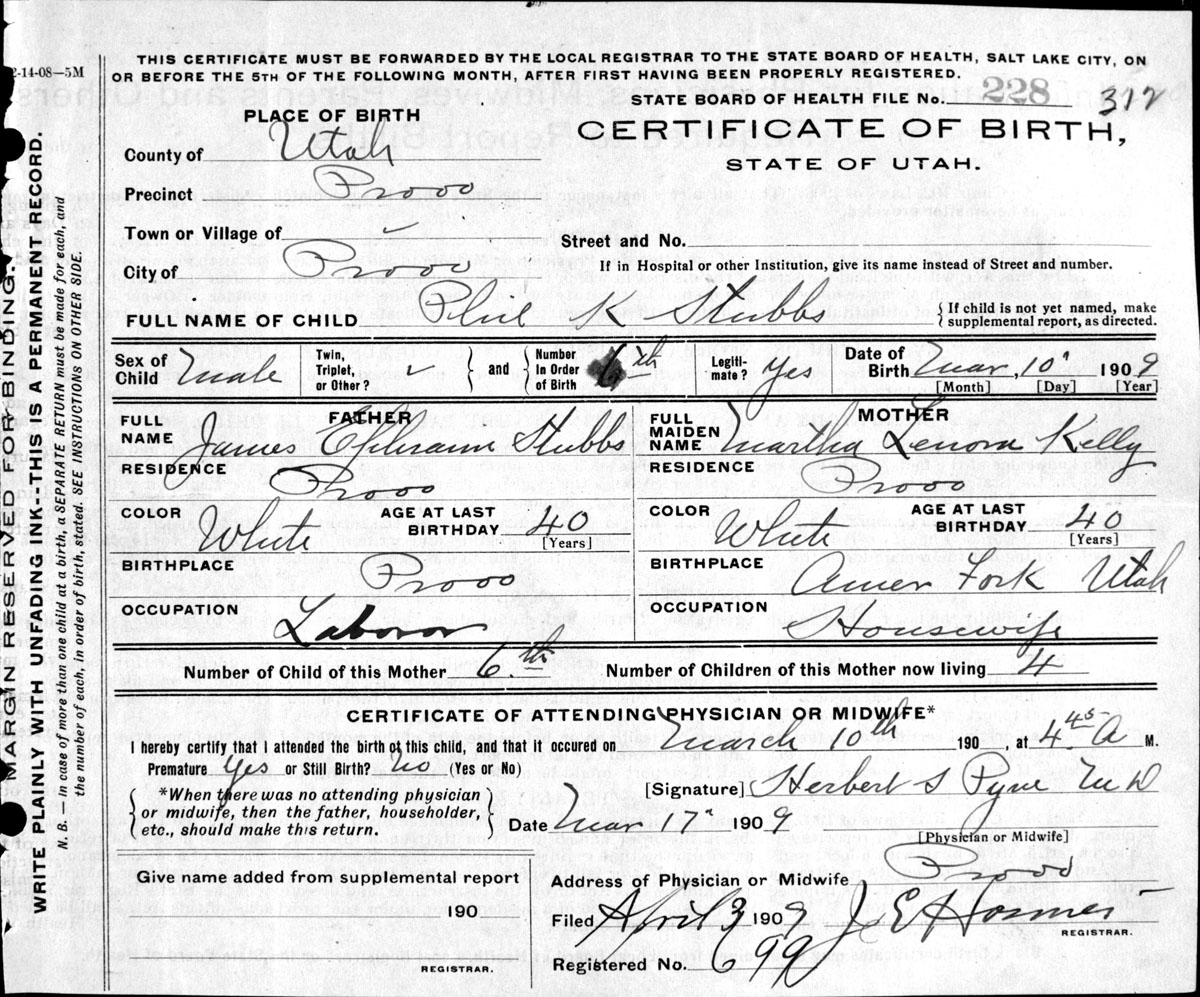 2-14-08—5M
THIS CERTIFICATE MUST BE FORWARDED BY THE LOCAL REGISTRAR TO THE STATE BOARD OF HEALTH, SALT LAKE CITY, ON
OR BEFORE THE 5TH OF THE FOLLOWING MONTH, AFTER FIRST HAVING BEEN PROPERLY REGISTERED.
STATE BOARD OF HEALTH FILE No. 228 312
PLACE OF BIRTH
CERTIFICATE OF BIRTH,
STATE OF UTAH.
County of Utah
Precinct Provo
Town or Village of
Street and No.
City of Provo
If in Hospital or other Institution, give its name instead of Street and number.
FULL NAME OF CHILD Phil K Stubbs
{ If child is not yet named, make
supplemental report, as directed.
Sex of Child Male Twin, Triplet, or Other? ✓ } and { Number In Order of Birth 6th Legitimate? Yes Date of Birth Mar, 10" 1909
[Month] [Day] [Year]
FATHER
FULL NAME James Ephraim Stubbs
RESIDENCE Provo
COLOR White AGE AT LAST BIRTHDAY 40
[Years]
BIRTHPLACE Provo
OCCUPATION Laboror
MOTHER
FULL MAIDEN NAME Martha Lenora Kelly
RESIDENCE Provo
COLOR White AGE AT LAST BIRTHDAY 40
[Years]
BIRTHPLACE Amer Fork Utah
OCCUPATION Housewife
Number of Child of this Mother 6.th Number of Children of this Mother now living 4
CERTIFICATE OF ATTENDING PHYSICIAN OR MIDWIFE*
I hereby certify that I attended the birth of this child, and that it occured on March 10th 190 , at 4 45 A M.
Premature Yes or Still Birth? No (Yes or No)
[Signature] Herbert S Pyne M D
{ *When there was no attending physician
or midwife, then the father, householder,
etc., should make this return. }
Date Mar 17" 1909
[Physician or Midwife]
Give name added from supplemental report
190
REGISTRAR.
Address of Physician or Midwife Provo
Filed April 3 1909 J E Hosmer
REGISTRAR.
Registered No. 699
MARGIN RESERVED FOR BINDING.
WRITE PLAINLY WITH UNFADING INK--THIS IS A PERMANENT RECORD.
N. B. — In case of more than one child at a birth, a SEPARATE RETURN must be made for each, and
the number of each, in order of birth, stated. SEE INSTRUCTIONS ON OTHER SIDE.